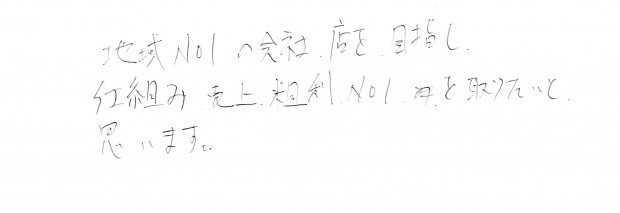 地域No1の会社、店を目指し、
仕組み、売上、粗利、No1を取りたいと
思います。